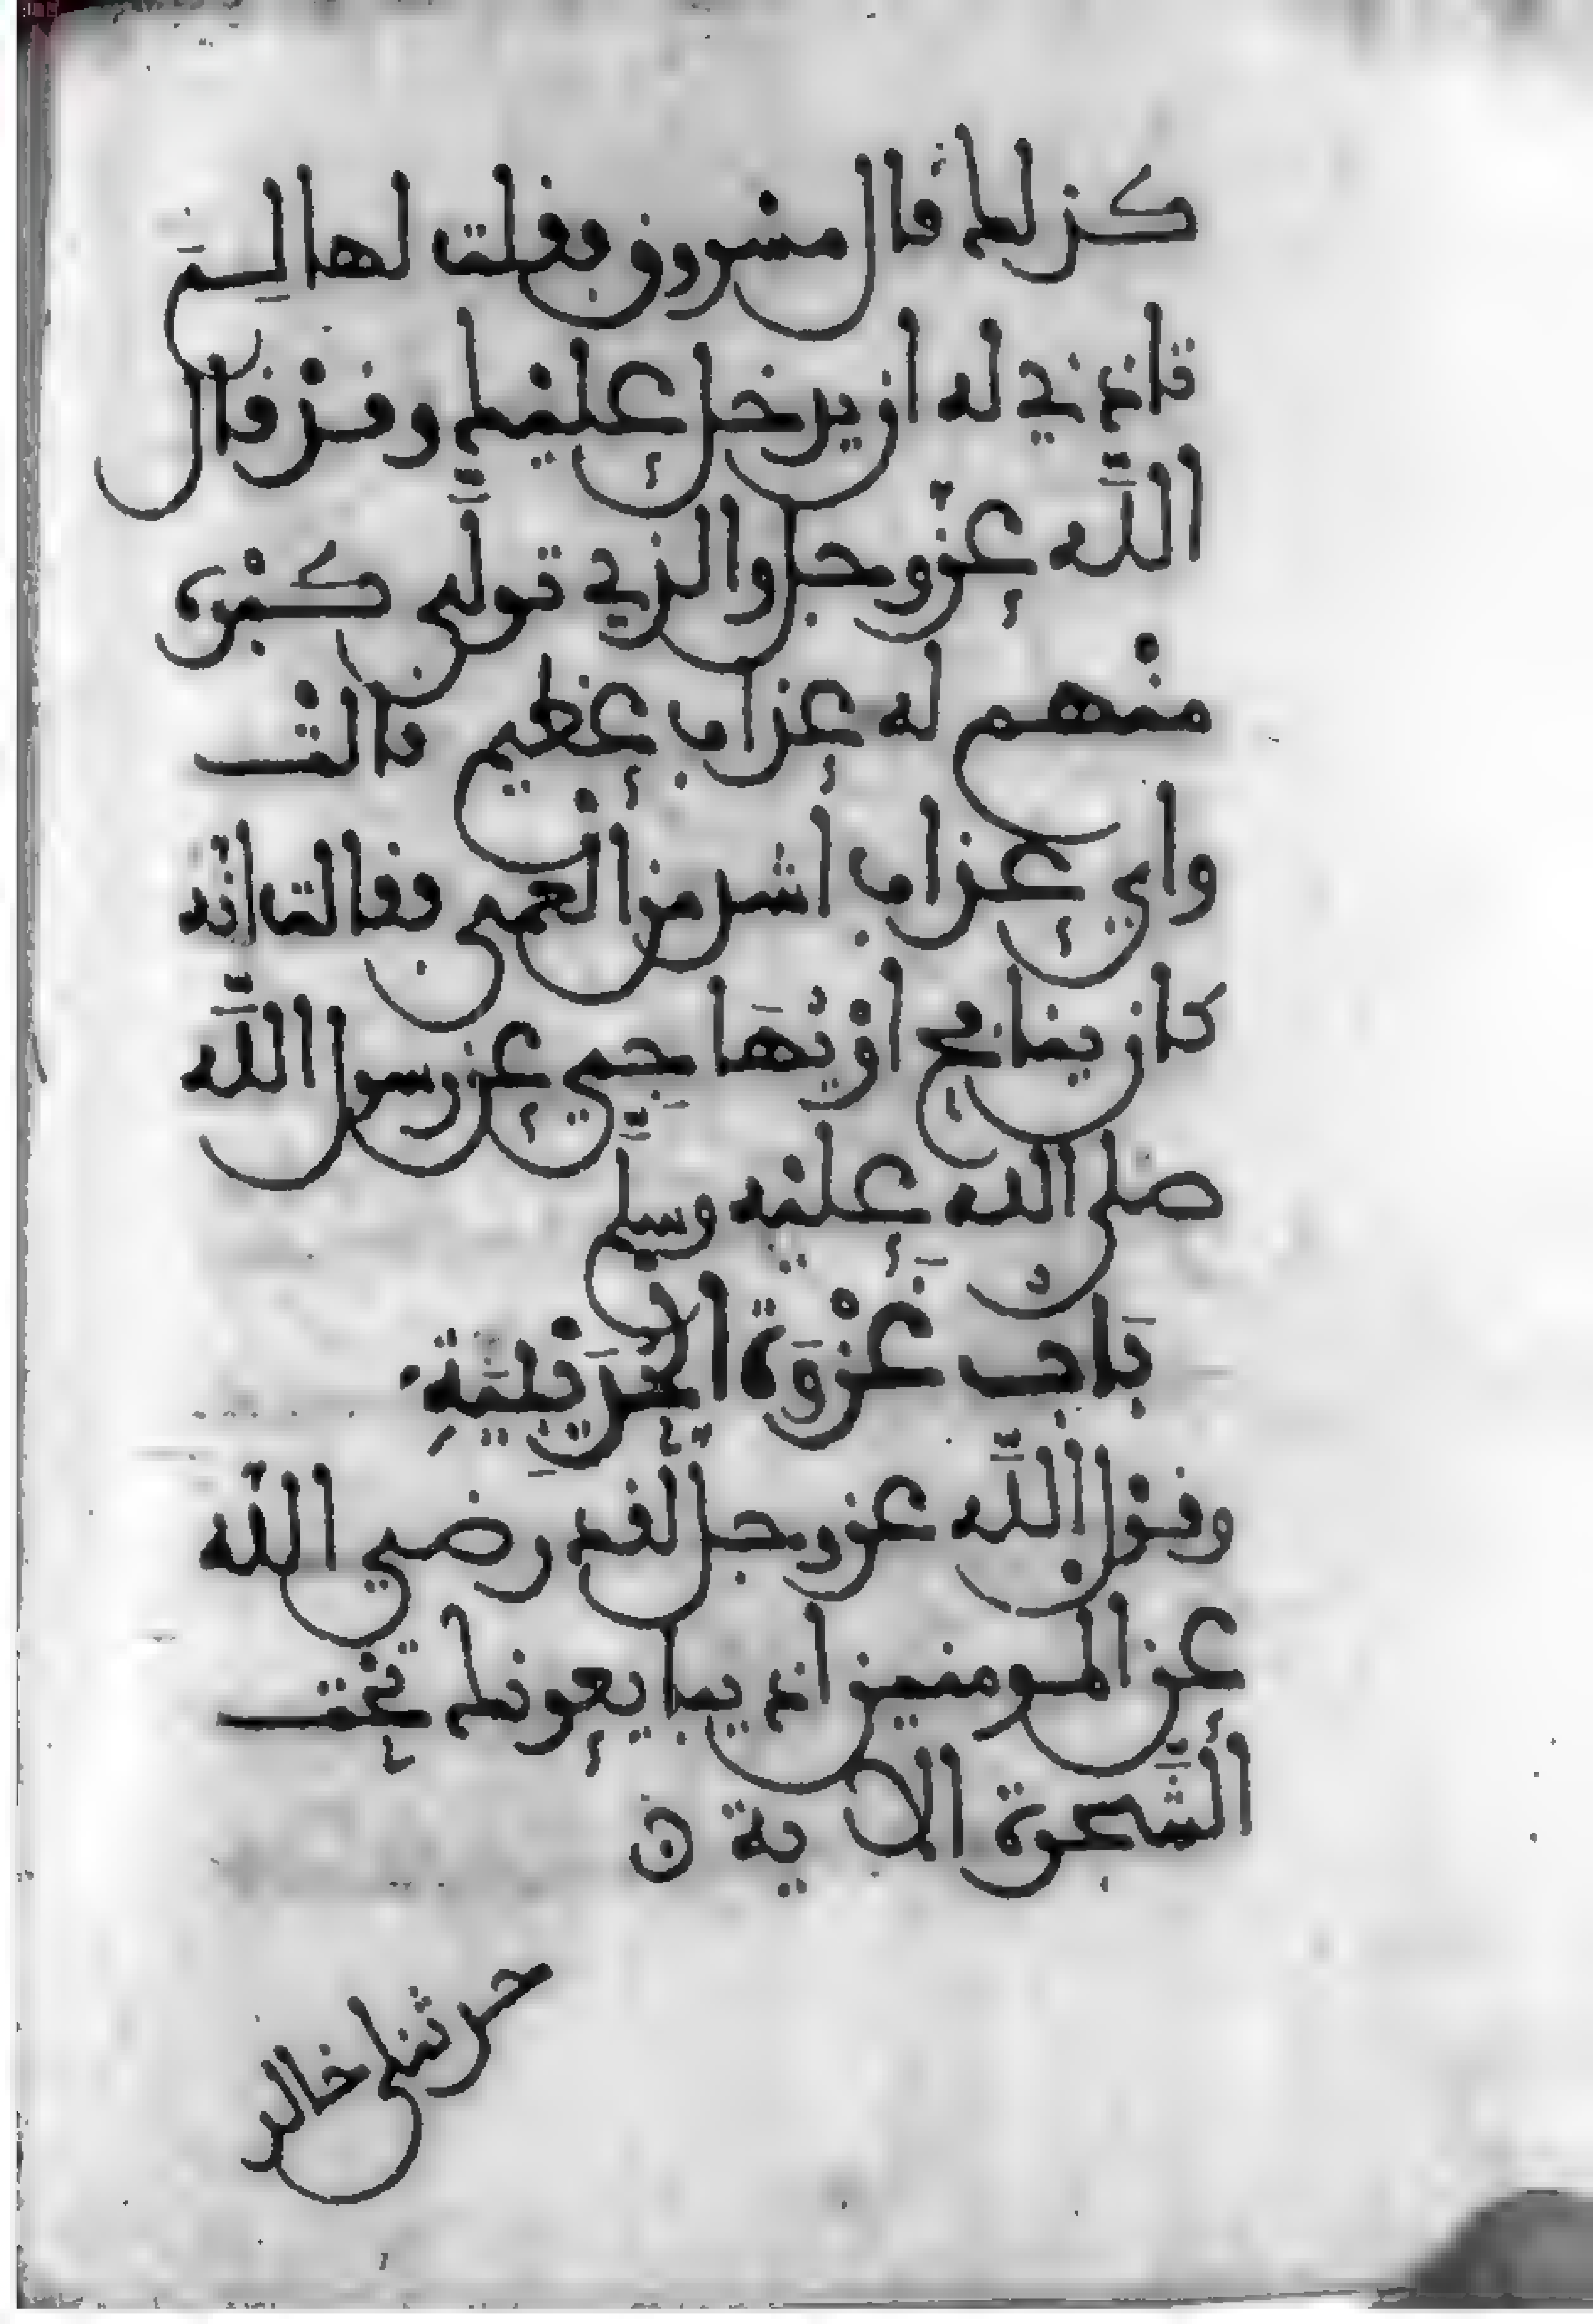 كذلك قال مسروق فقلت لها لم
تاذني له ان يدخل عليك وقد قال
الله عز وجل والذي تولى كبره
منهم له عذاب عظيم قالت
واي عذاب اشد من العمى فقالت انه
كان ينافح او يهاجي عن رسول الله
صلى الله عليه وسلم
باب غزوة الحديبية
وقول الله عز وجل لقد رضي الله
عن المومنين اذ يبايعونك تحت
الشجرة الاية ن
حدثنا خالد